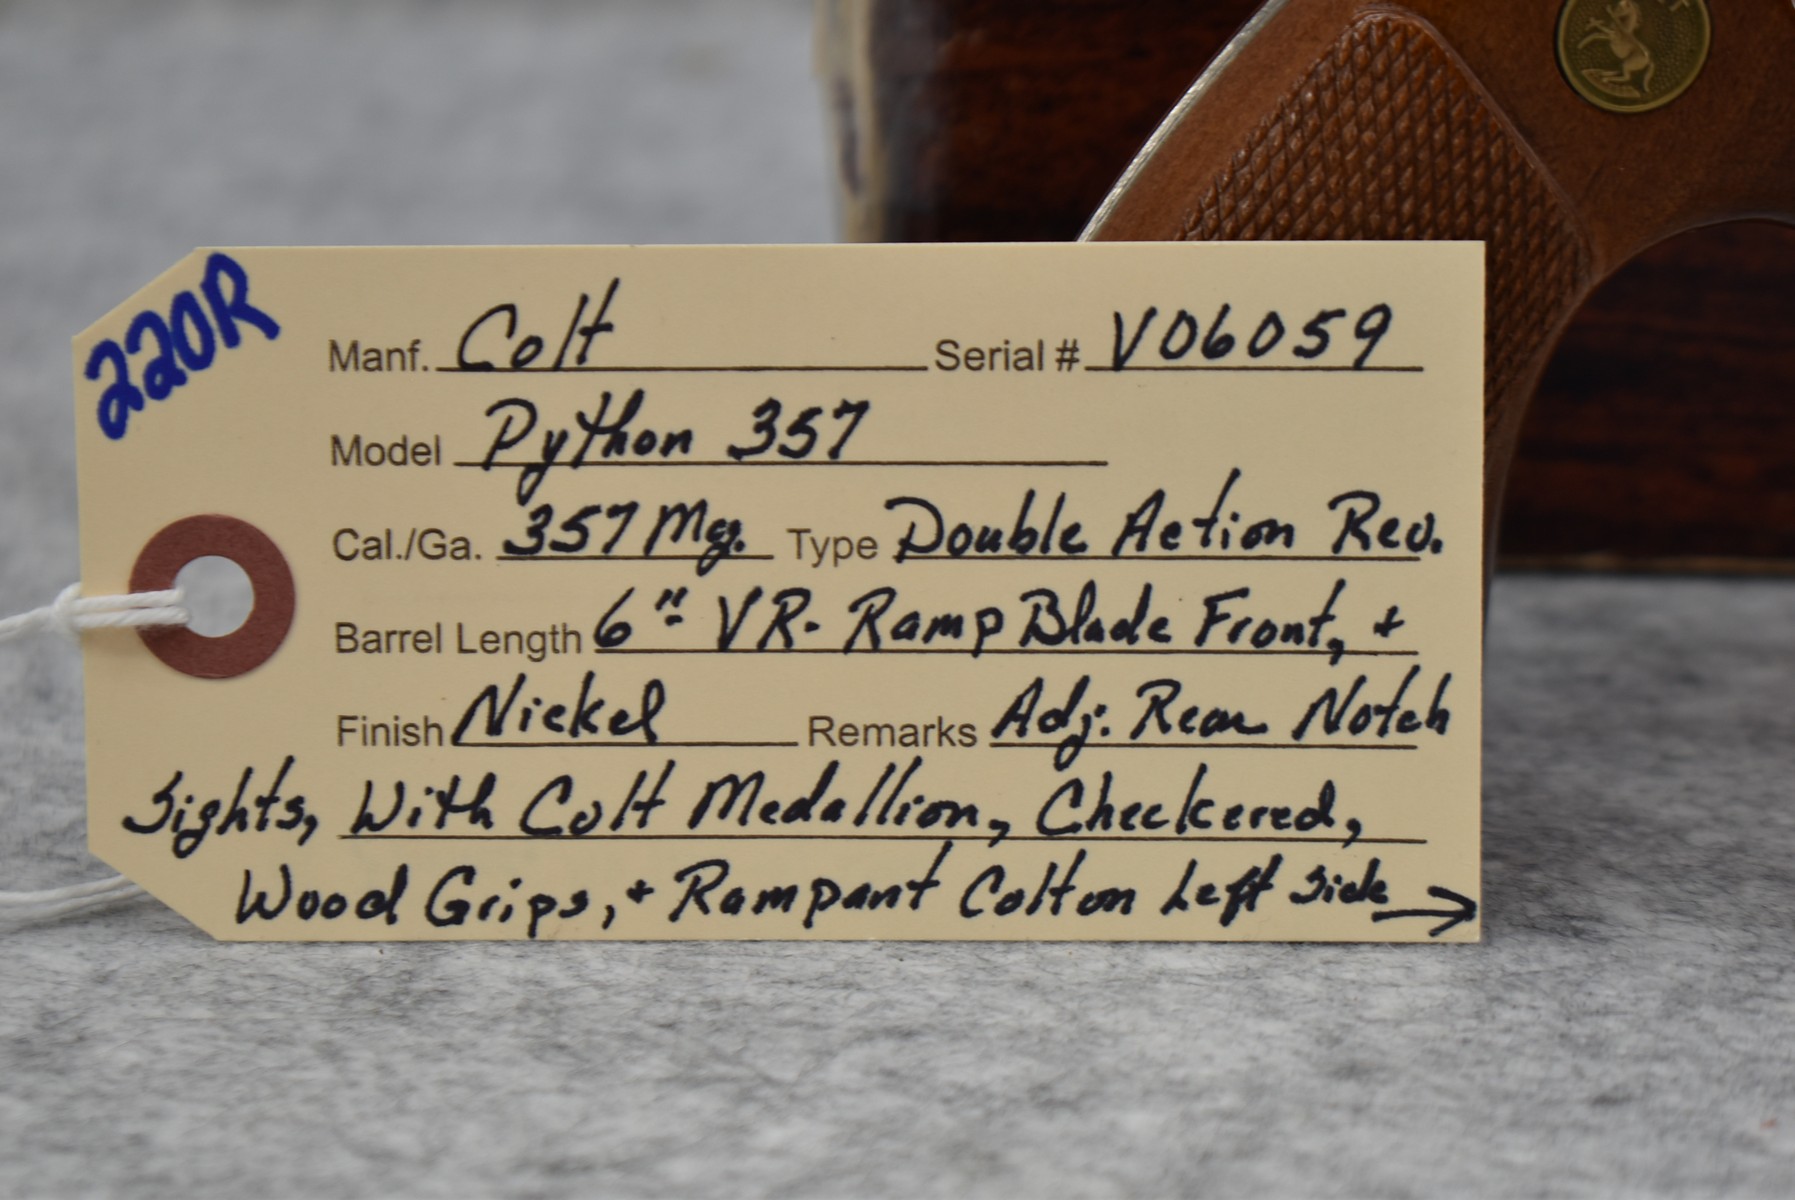 220R
Manf. Colt Serial # V06059
Model Python 357
Cal./Ga. 357 Mg. Type Double Action Rev.
Barrel Length 6" VR- Ramp Blade Front, +
Finish Nickel Remarks Adj. Rear Notch
Sights, With Colt Medallion, Checkered,
Wood Grips, + Rampant Colt on Left Side →